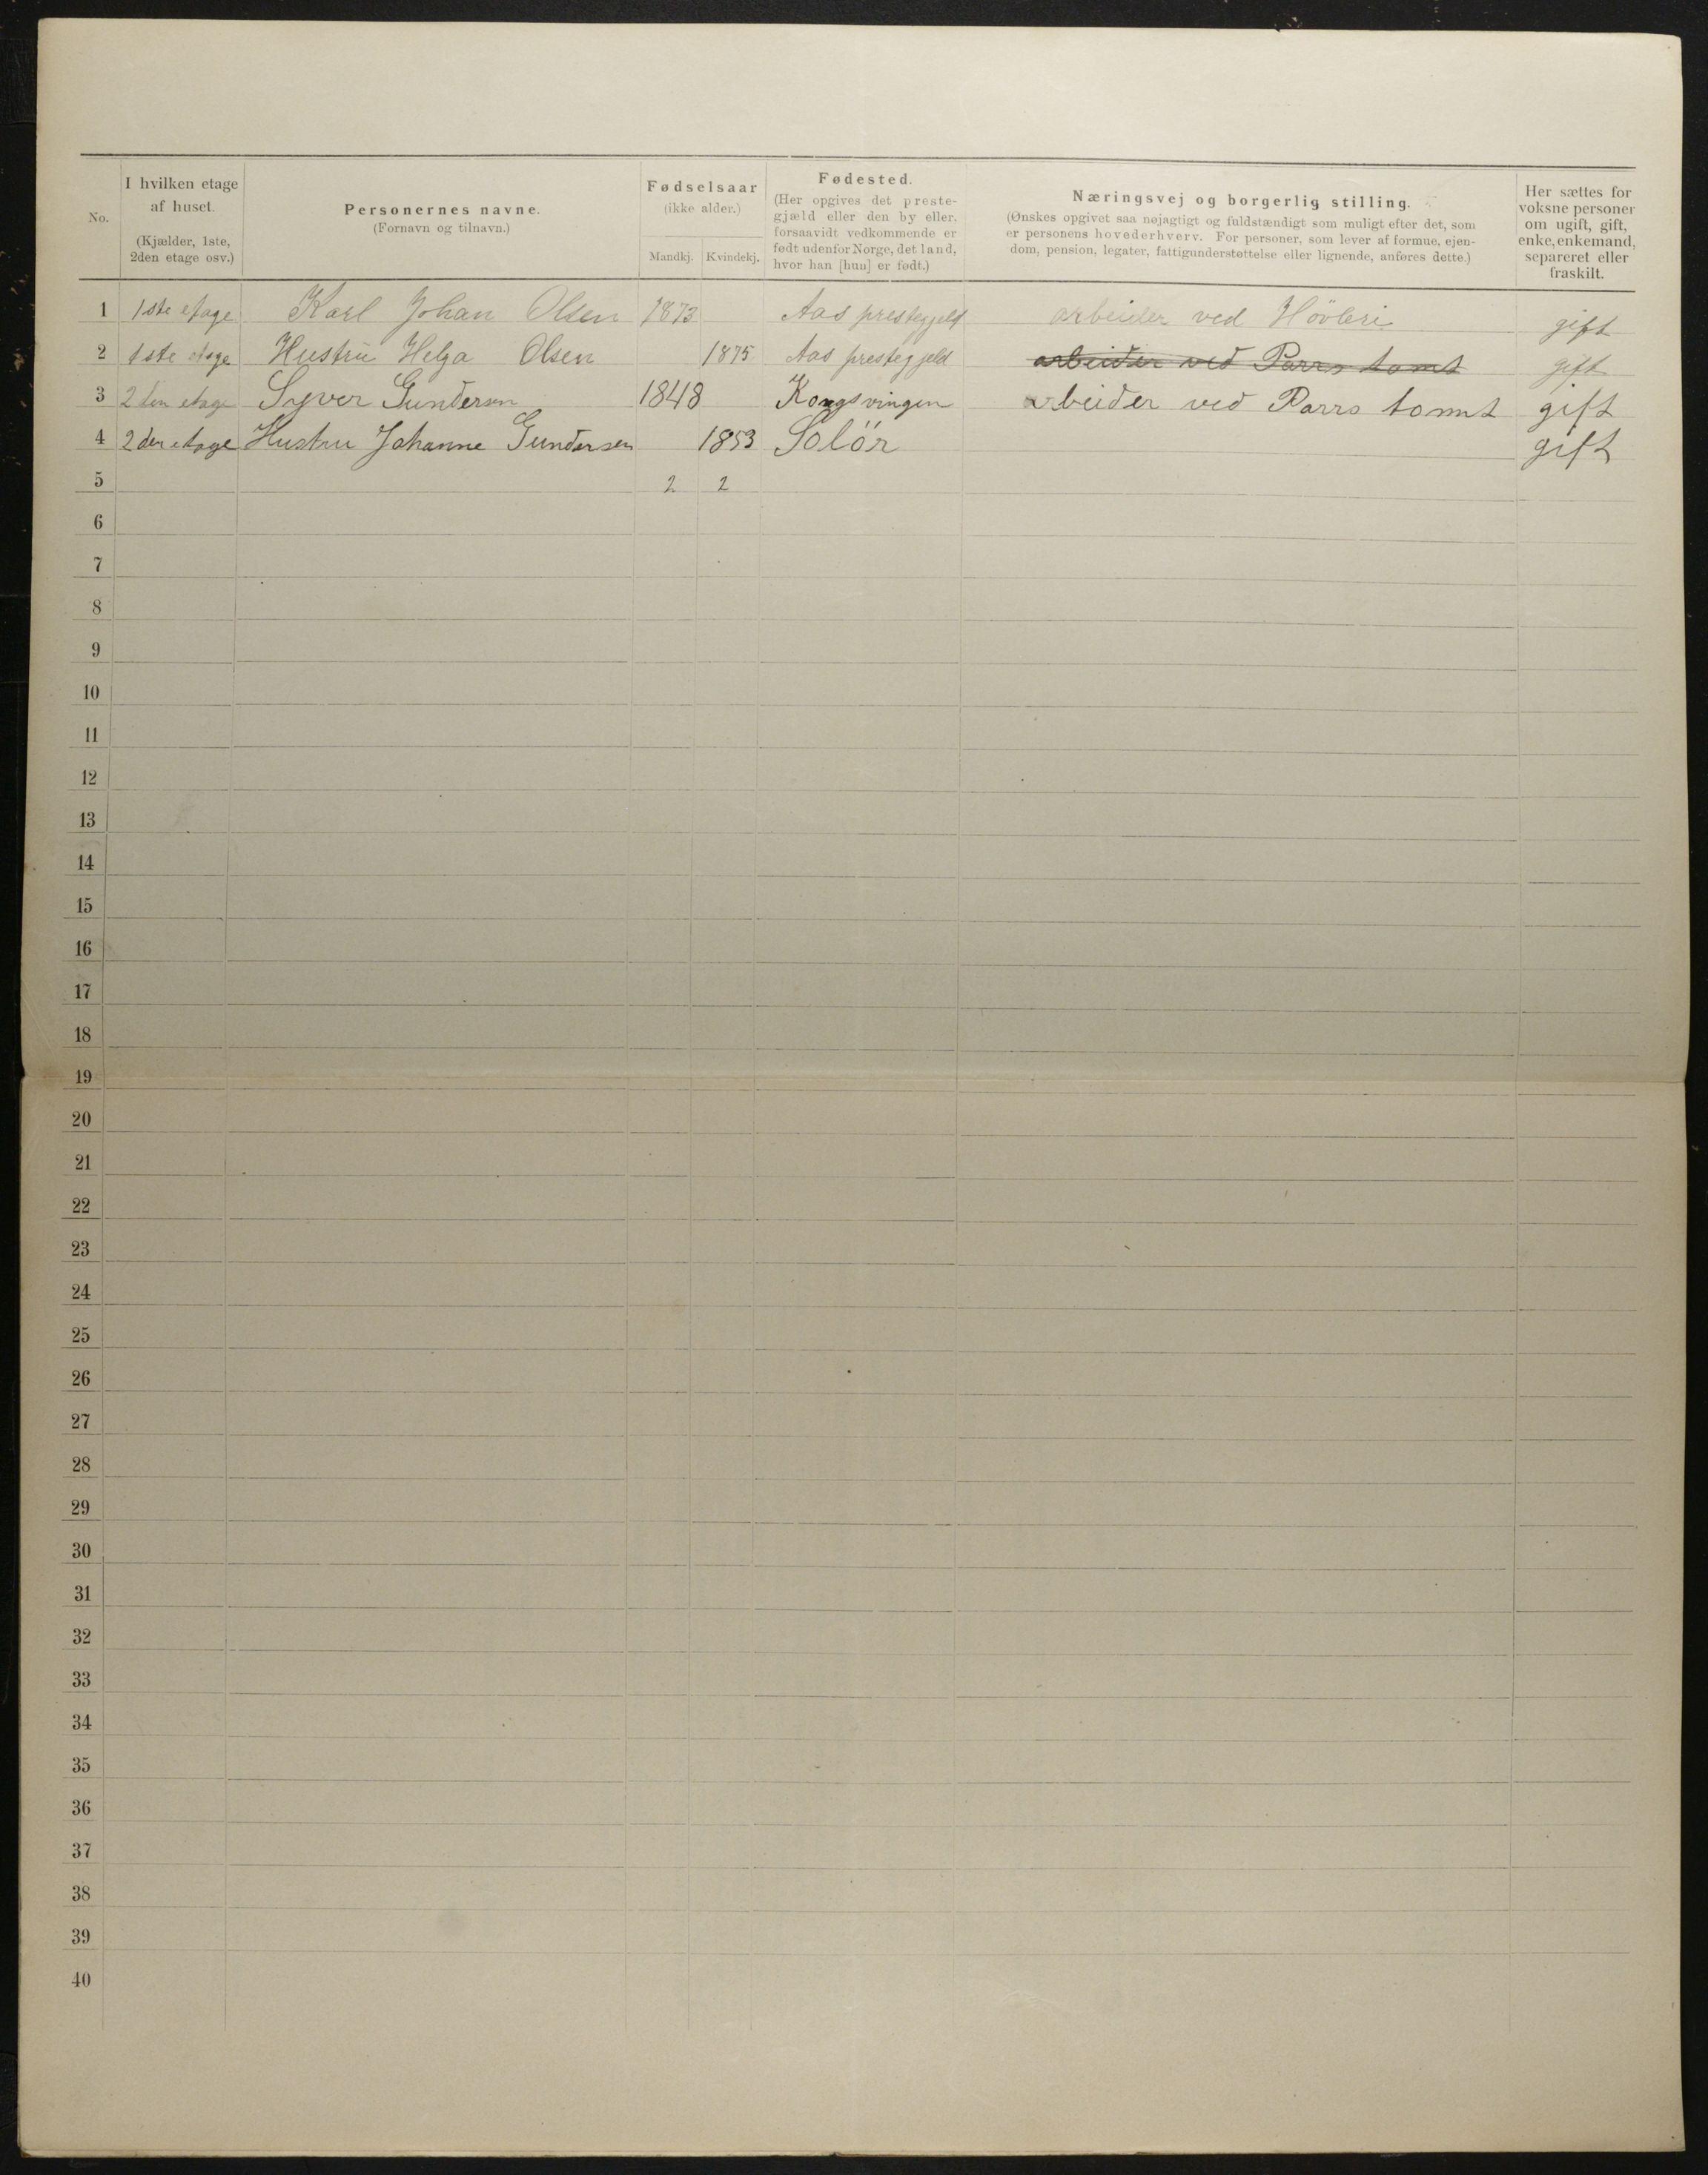 No.
I hvilken etage
af huset.
(Kjælder, 1ste,
2den etage osv.)
Personernes navne.
(Fornavn og tilnavn.)
Fødselsaar
(ikke alder.)
Mandkj. Kvindekj.
Fødested.
(Her opgives det preste-
gjæld eller den by eller,
forsaavidt vedkommende er
født udenfor Norge, det land,
hvor han [hun] er født.)
Næringsvej og borgerlig stilling.
(Ønskes opgivet saa nøjagtigt og fuldstændigt som muligt efter det, som
er personens hovederhverv. For personer, som lever af formue, ejen-
dom, pension, legater, fattigunderstøttelse eller lignende, anføres dette.)
Her sættes for
voksne personer
om ugift, gift,
enke, enkemand,
separeret eller
fraskilt.
1 1ste etage Karl Johan Olsen 1873 Aas prestegjeld arbeider ved Hövleri gift
2 1ste etage Hustru Helga Olsen 1875 Aas prestegjeld arbeider ved Parrs tomt gift
3 2den etage Syver Gundersen 1848 Kongsvingen arbeider ved Parrs tomt gift
4 2den etage Hustru Johanne Gundersen 1853 Solör gift
5 2 2
6
7
8
9
10
11
12
13
14
15
16
17
18
19
20
21
22
23
24
25
26
27
28
29
30
31
32
33
34
35
36
37
38
39
40